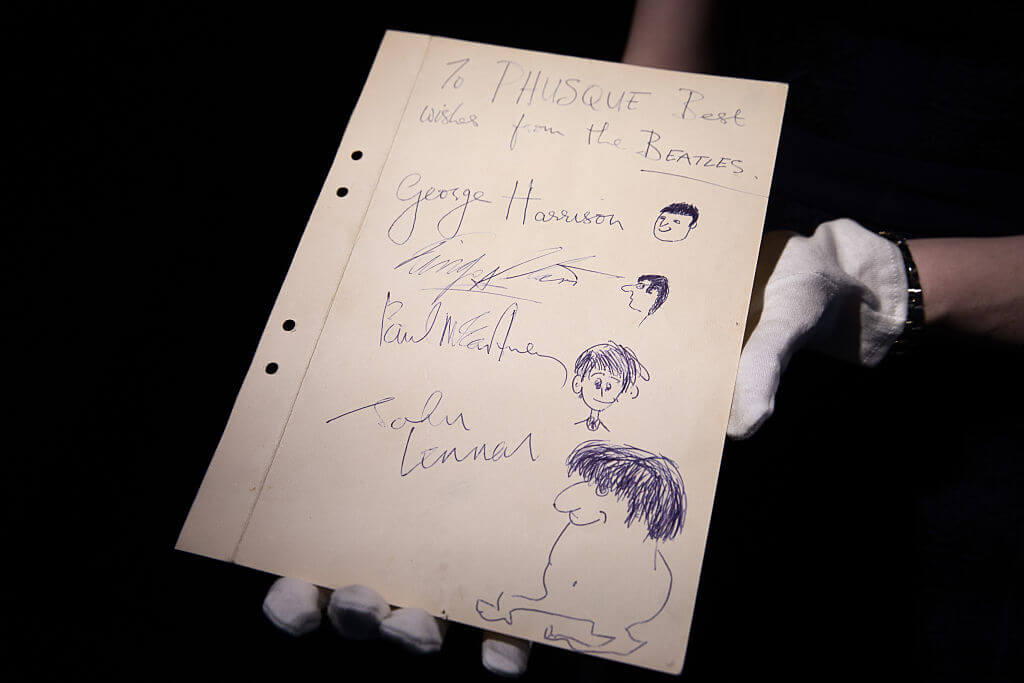 To PHUSQUE Best
wishes from the BEATLES.
George Harrison
Ringo Starr
Paul McCartney
John
Lennon